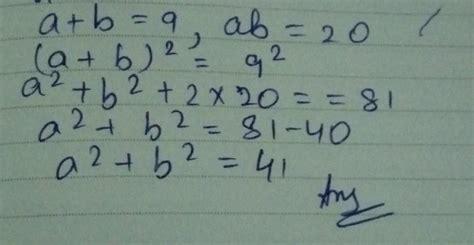 a + b = 9, ab = 20
(a + b)² = 9²
a² + b² + 2 × 20 = = 81
a² + b² = 81 - 40
a² + b² = 41
Ans